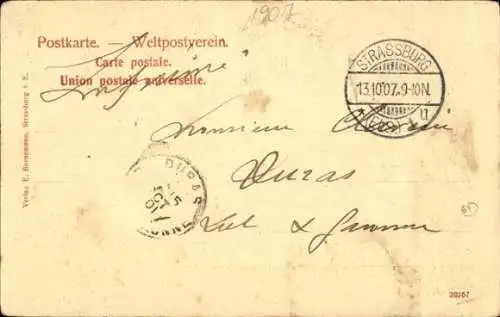 1907
Postkarte. — Weltpostverein.
Carte postale.
Union postale universelle.
Imprimé
STRASSBURG
13.10.07.9-10N.
(ELS.) 1 u
Monsieur
Duras
Lot & Garonne
DURAS
15
OCT
07
GARONNE
47
Verlag E. Hornemann, Strassburg i. E.
39367